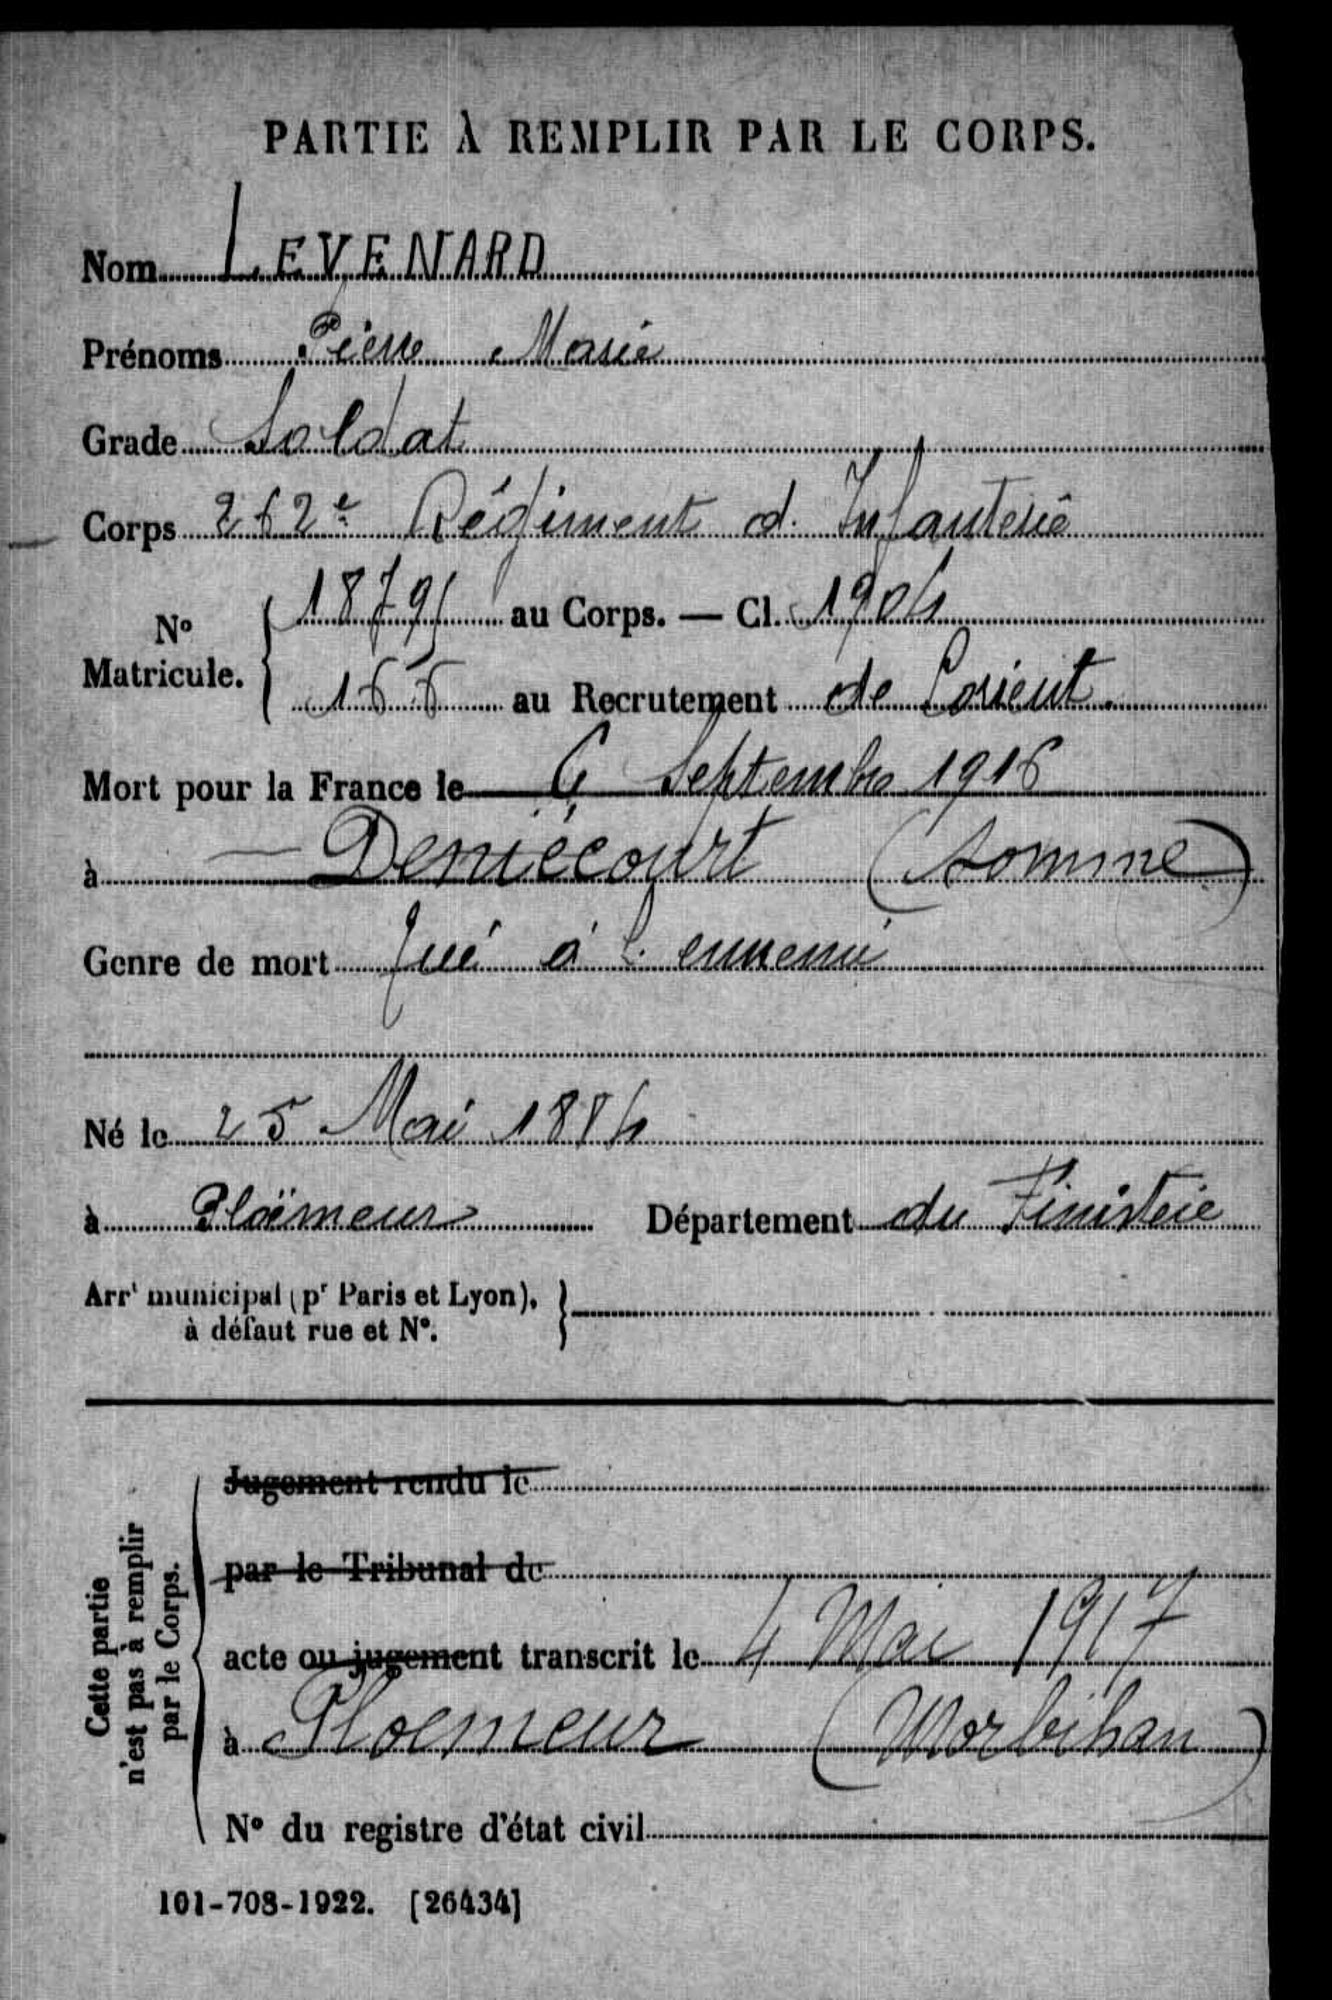 PARTIE À REMPLIR PAR LE CORPS.
Nom LEVENARD
Prénoms Pierre Marie
Grade Soldat
Corps 262e Régiment d. Infanterie
No Matricule. { 18791 au Corps. — Cl. 1904
166 au Recrutement de Lorient.
Mort pour la France le Septembre 1916
à Deniécourt (Somme)
Genre de mort Tué à l. ennemi
Né le 25 Mai 1884
à Ploëmeur Département du Finistère
Arrt municipal (pr Paris et Lyon), à défaut rue et No.
Cette partie n'est pas à remplir par le Corps.
Jugement rendu le
par le Tribunal de
acte ou jugement transcrit le 4 Mai 1917
à Ploemeur (Morbihan)
No du registre d'état civil
101-708-1922. [26434]